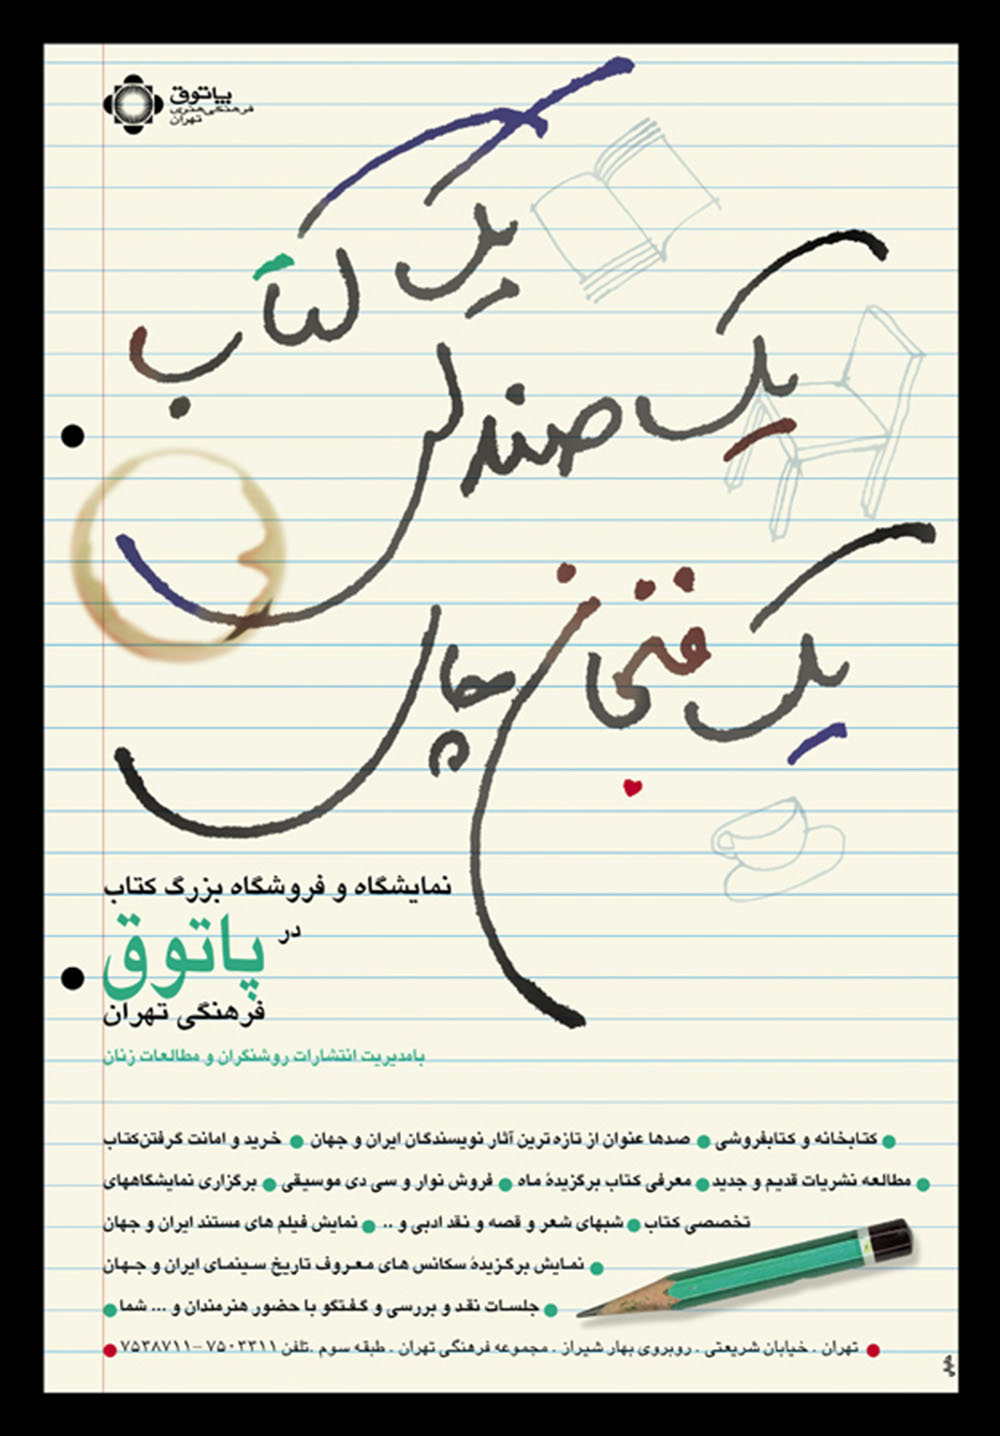 پاتوق
فرهنگی هنری
تهران
یک کتاب
یک صندلی
یک فنجان چای
نمایشگاه و فروشگاه بزرگ کتاب
در
پاتوق
فرهنگی تهران
بامدیریت انتشارات روشنگران و مطالعات زنان
● کتابخانه و کتابفروشی ● صدها عنوان از تازه ترین آثار نویسندگان ایران و جهان ● خرید و امانت گرفتن‌کتاب
● مطالعه نشریات قدیم و جدید ● معرفی کتاب برگزیدهٔ ماه ● فروش نوار و سی دی موسیقی ● برگزاری نمایشگاههای
تخصصی کتاب ● شبهای شعر و قصه و نقد ادبی و .. ● نمایش فیلم های مستند ایران و جهان
● نمایش برگزیدهٔ سکانس های معروف تاریخ سینمای ایران و جهان
● جلسات نقد و بررسی و گفتگو با حضور هنرمندان و ... شما ●
● تهران . خیابان شریعتی . روبروی بهار شیراز . مجموعه فرهنگی تهران . طبقه سوم .تلفن ۷۵۰۳۳۱۱ – ۷۵۳۸۷۱۱ ●